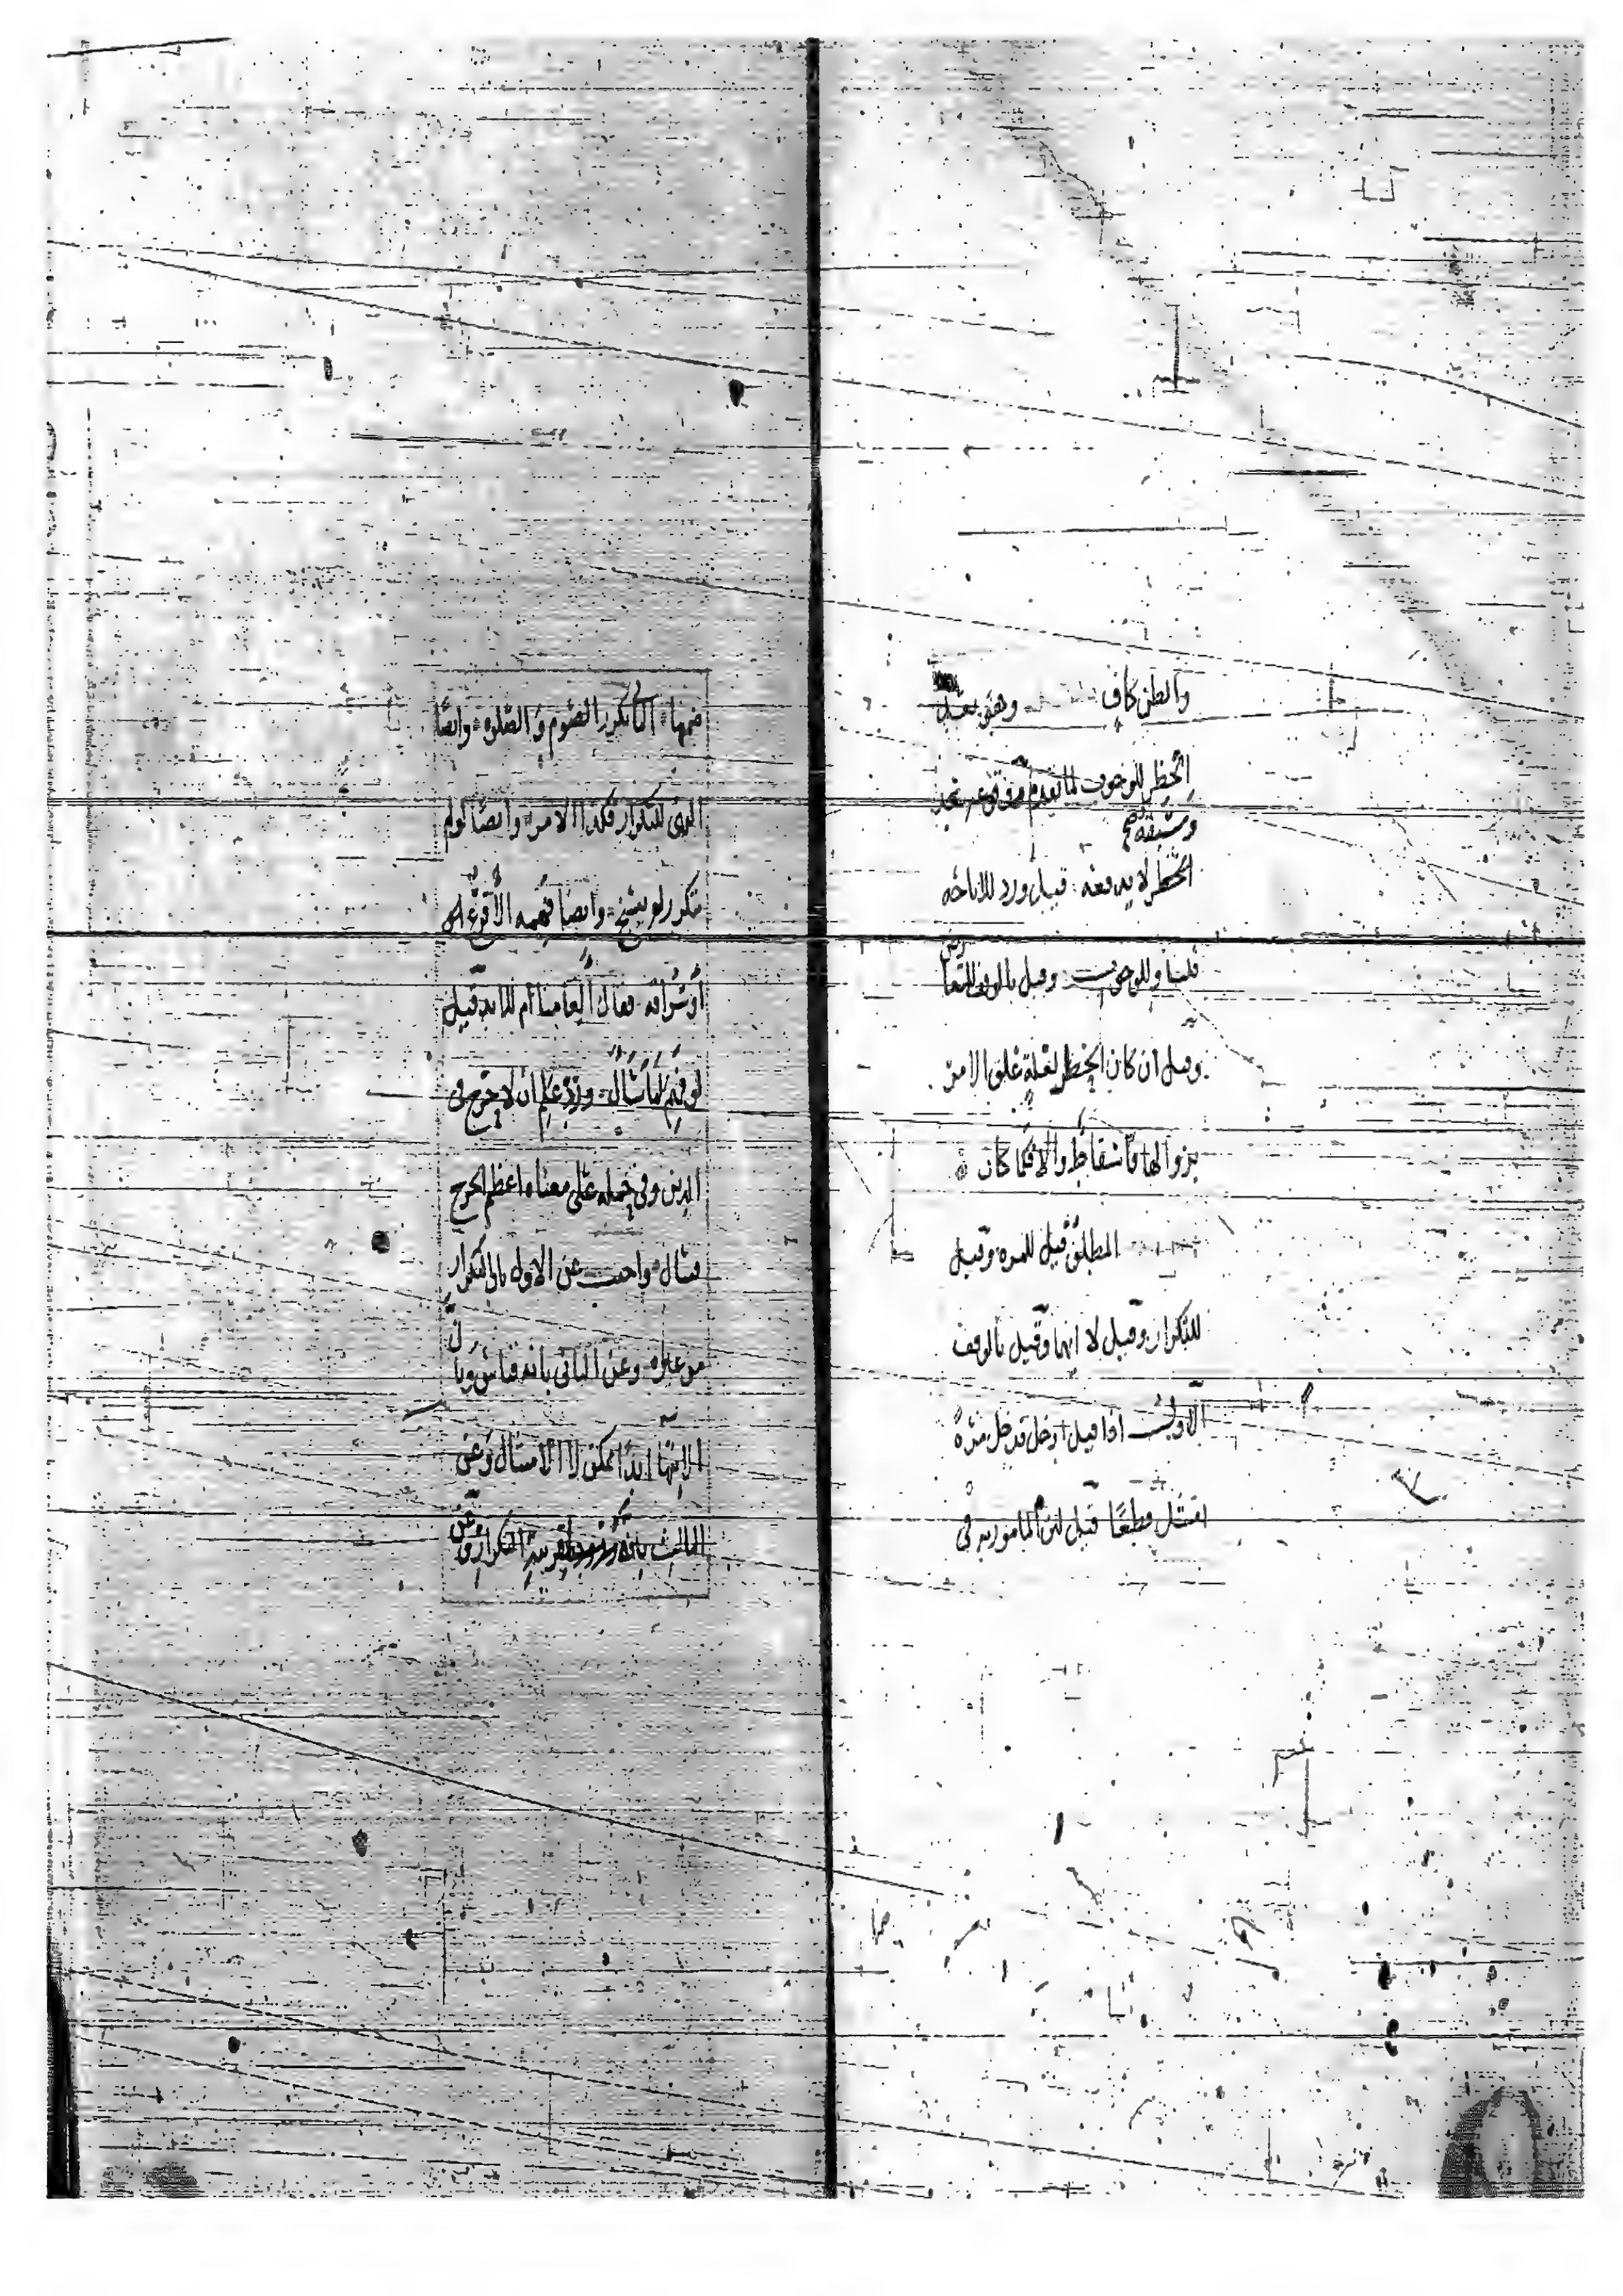 والظن كاف وهو بعد
الحظر للوجوب لما تقدم
وسبقه
الحظر لا يدفعه قيل ورد للاباحه
قلنا وللوجوب وقيل بالوقف للتعا
رض
وقيل ان كان الحظر لعلة علق الامر
بزوالها فاسقاط والا فكما كان
المطلق قيل للمره وقيل
للتكرار وقيل لا ايهما وقيل بالوقف
الاول اذا قيل ادخل فدخل مرة
امتثل قطعا قيل لان المامور به في
ضمنها الثاني تكرر الصوم والصلوه وايضا
النهي للتكرار فكذا الامر وايضا لو لم
تكرر لم ينسخ وايضا فهمه الاقرع بن
سراقه فقال العامنا ام للابد قيل
لو فهم لما سأل ورد علم ان لا حرج في
الدين وفي حمله على معناه اعظم الحرج
فسأل واجيب عن الاول بان التكرار
من غيره وعن الثاني بانه قياس وبا
ن
الانتها ابدا ممكن لا الامتثال وعن
الثالث بانه بقرينة التكرار وعن